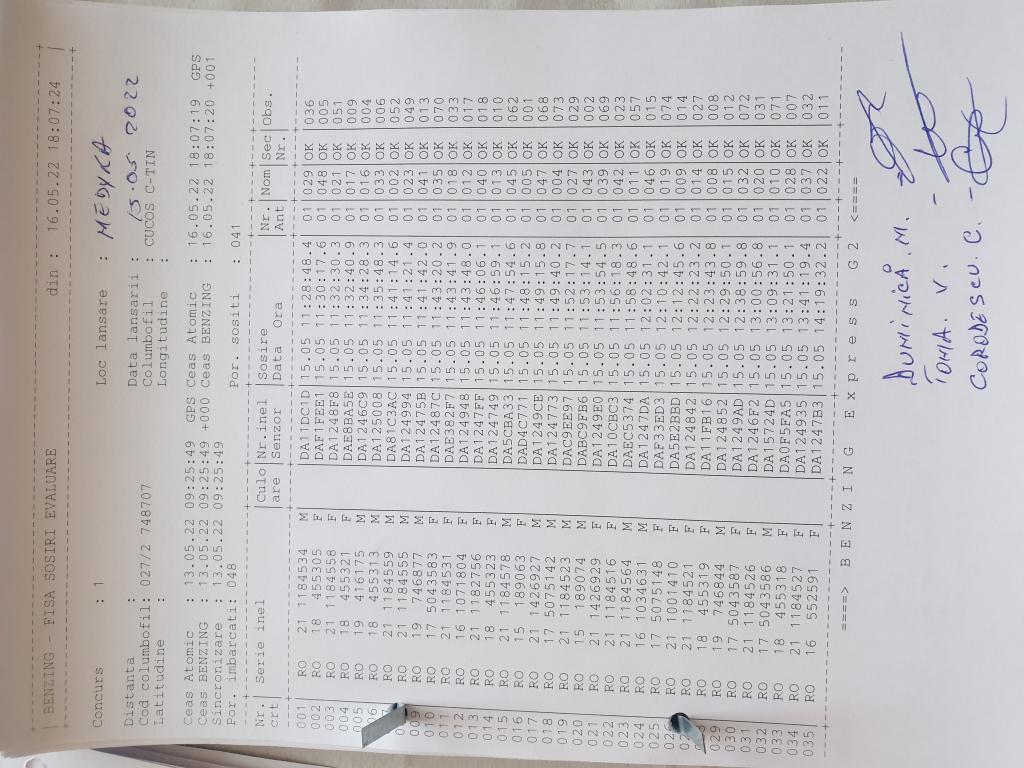 BENZING - FISA SOSIRI EVALUARE din : 16.05.22 18:07:24
Concurs : 1 Loc lansare : MEDYKA
Distanta : Data lansarii : 15.05 2022
Cod columbofil: 027/2 748707 Columbofil : CUCOS C-TIN
Latitudine : Longitudine :
Ceas Atomic : 13.05.22 09:25:49 GPS Ceas Atomic : 16.05.22 18:07:19 GPS
Ceas BENZING : 13.05.22 09:25:49 +000 Ceas BENZING : 16.05.22 18:07:20 +001
Sincronizare : 13.05.22 09:25:49
Por. imbarcati: 048 Por. sositi : 041
Nr. | Serie inel |Culo|Nr.inel |Sosire |Nr. |Nom|Sec|Obs.
crt | |are |Senzor |Data Ora |Ant | |Nr.|
001 RO 21 1184534 M DA11DC1D 15.05 11:28:48.4 01 029 OK 036
002 RO 18 455305 F DAF1FEE1 15.05 11:30:17.6 01 048 OK 005
003 RO 21 1184558 F DA1248F8 15.05 11:32:30.3 01 001 OK 051
004 RO 18 455321 F DAE8BA5E 15.05 11:32:40.9 01 017 OK 009
005 RO 19 416175 M DA1246C9 15.05 11:34:28.3 01 016 OK 004
006 RO 18 455313 M DA125008 15.05 11:35:48.3 01 033 OK 006
RO 21 1184559 M DA81C3AC 15.05 11:41:14.6 01 002 OK 052
RO 21 1184555 M DA124994 15.05 11:41:21.4 01 023 OK 049
009 RO 19 746877 M DA12475B 15.05 11:41:42.0 01 041 OK 013
010 RO 17 5043583 F DA12487C 15.05 11:43:20.2 01 035 OK 070
011 RO 21 1184531 F DAE382F7 15.05 11:43:41.9 01 018 OK 033
012 RO 16 1071804 F DA124948 15.05 11:45:49.3 01 012 OK 017
013 RO 21 1182756 F DA1247FF 15.05 11:46:06.1 01 040 OK 018
014 RO 18 455323 F DA124749 15.05 11:46:59.1 01 013 OK 010
015 RO 21 1184578 M DA5CBA33 15.05 11:47:54.6 01 045 OK 062
016 RO 15 189063 F DAD4C771 15.05 11:48:15.2 01 005 OK 001
017 RO 21 1426927 M DA1249CE 15.05 11:49:15.8 01 047 OK 068
018 RO 17 5075142 M DA124773 15.05 11:49:40.2 01 004 OK 073
019 RO 21 1184523 M DAC9EE97 15.05 11:52:17.7 01 027 OK 029
020 RO 15 189074 M DABC9FB6 15.05 11:53:14.1 01 043 OK 002
021 RO 21 1426929 F DA1249E0 15.05 11:53:54.5 01 039 OK 069
022 RO 21 1184516 F DA10CBC3 15.05 11:56:18.3 01 042 OK 023
023 RO 21 1184564 M DAEC5374 15.05 11:56:48.6 01 011 OK 057
024 RO 16 1034631 M DA1247DA 15.05 12:02:31.1 01 046 OK 015
025 RO 17 5075148 F DAF33ED3 15.05 12:10:42.1 01 019 OK 074
RO 21 1001410 F DA5E2BBD 15.05 12:12:45.6 01 009 OK 014
RO 21 1184521 F DA124842 15.05 12:22:23.2 01 014 OK 027
RO 18 455319 F DA11FB16 15.05 12:23:43.8 01 008 OK 008
029 RO 19 746844 M DA124852 15.05 12:29:50.1 01 015 OK 012
030 RO 17 5043587 F DA1249AD 15.05 12:38:59.8 01 032 OK 072
031 RO 21 1184526 F DA1246F2 15.05 13:00:56.8 01 020 OK 031
032 RO 17 5043586 M DA15724D 15.05 13:09:31.1 01 010 OK 071
033 RO 18 455318 F DA0F5FA5 15.05 13:21:50.1 01 028 OK 007
034 RO 21 1184527 F DA124935 15.05 13:41:19.4 01 037 OK 032
035 RO 16 552591 F DA1247B3 15.05 14:19:32.2 01 022 OK 011
====> B E N Z I N G   E x p r e s s   G 2 <====
DUMINICĂ. M. -
TOMA. V. -
CORODESCU. C. -